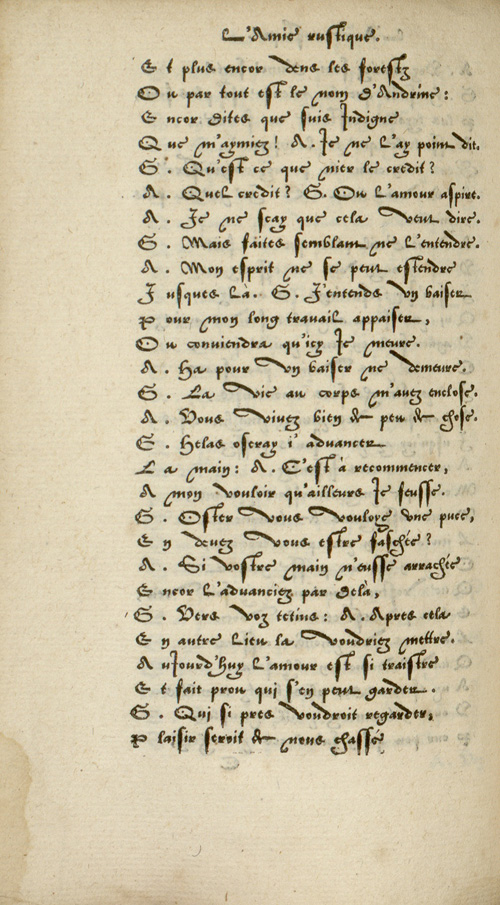 L'Amie rustique.
Et plus encor dens les forestz
Ou par tout est le nom d'Andrine:
Encor dites que suis Indigne
Que m'aymiez! A. Je ne l'ay point dit.
G. Qu'est ce que nier le credit?
A. Quel credit? G. Ou l'amour aspire.
A. Je ne scay que cela veut dire.
G. Mais faites semblant ne l'entendre.
A. Mon esprit ne se peut estendre
Jusques là. G. J'entends vn baiser
Pour mon long travail appaiser,
Ou conviendra qu'icy Je meure.
A. Ha pour vn baiser ne demeure.
G. La vie au corps m'avez enclose.
A. Vous vivez bien de peu de chose.
G. Helas oseray i'advancer
La main: A. C'est à recommencer,
A mon vouloir qu'ailleurs Je feusse.
G. Oster vous vouloye vne puce,
En devez vous estre faschée?
A. Si vostre main n'eusse arrachée
Encor l'advanciez par delà,
G. Vers voz tetins: A. Apres cela
En autre lieu la voudriez mettre.
Aujourd'huy l'amour est si traistre
Et fait prou qui s'en peut garder.
G. Qui si pres voudroit regarder,
Plaisir seroit de nous chassé